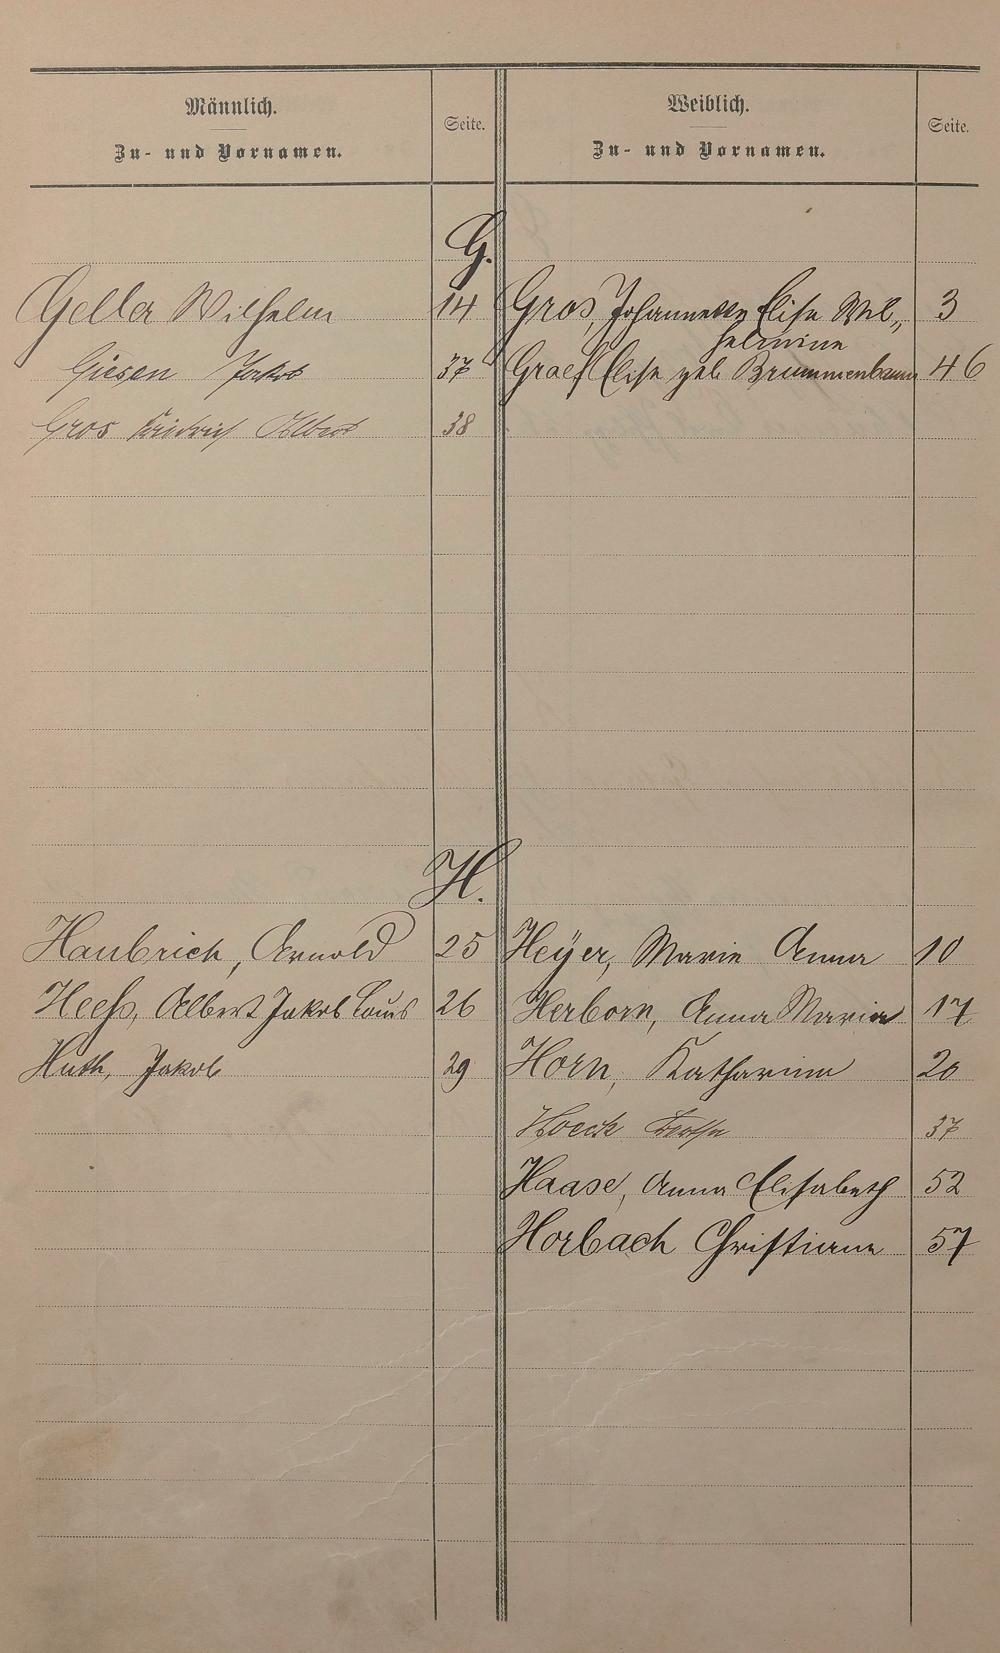 Männlich.
Zu- und Vornamen.
Seite.
Weiblich.
Zu- und Vornamen.
Seite.
G.
Geller Wilhelm 14
Giesen Jakob 37
Gros Friedrich Albert 38
Gros, Johannette Elise Wil„ 3
helmine
Graef Elise geb Brummenbaum 46
H.
Haubrich, Arnold 25
Heeß, Albert Jakob Louis 26
Huth, Jakob 29
Heÿer, Marie Anna 10
Herborn, Anna Maria 17
Horn, Katharina 20
Hoeck Bertha 37
Haase, Anna Elisabeth 52
Horbach Christiane 57